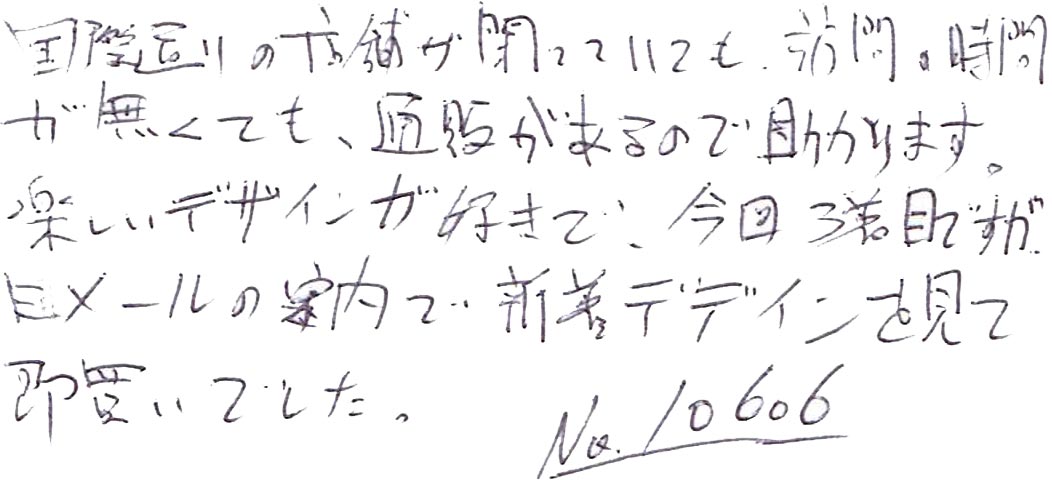 国際通りの店舗が閉っていても、訪問の時間
が無くても、通販があるので助かります。
楽しいデザインが好きで、今回3着目ですが
Eメールの案内で新着デデインを見て
即買いでした。
No.10606